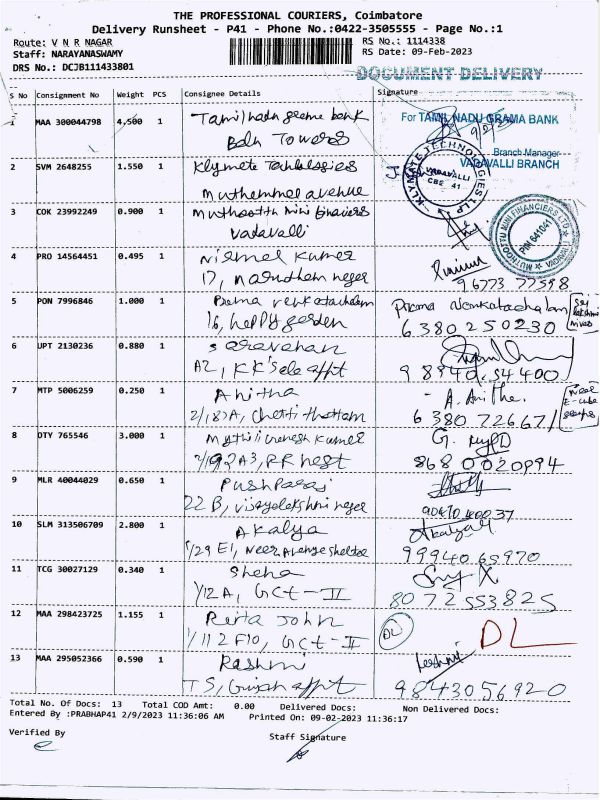 THE PROFESSIONAL COURIERS, Coimbatore
Delivery Runsheet - P41 - Phone No.:0422-3505555 - Page No.:1
Route: V N R NAGAR
Staff: NARAYANASWAMY
DRS No.: DCJB111433801
RS No.: 1114338
RS Date: 09-Feb-2023
DOCUMENT DELIVERY
S No Consignment No Weight PCS Consignee Details Signature
1 MAA 300044798 4.500 1 Tamilnadu grama bank
Towers
For TAMIL NADU GRAMA BANK
Branch Manager
VADAVALLI BRANCH
2 SVM 2648255 1.550 1 Klymete
avenue
KLYMATE TECHNOLOGIES LLP
VADAVALLI
CBE 41
3 COK 23992249 0.900 1 Muthoottu mini
Vadavalli
MUTHOOTTU MINI FINANCIERS LTD
PIN 641041
4 PRO 14564451 0.495 1 Nirmal Kumar
17, marudham nagar
96773 77598
5 PON 7996846 1.000 1 Prema venkatachalam
16, happy garden
Prema Venkatachalam
6380250230
6 UPT 2130236 0.880 1 Saravanan
A2, KK
7 MTP 5006259 0.250 1 Anitha
2/182A, Chetti thottam
A. Anitha.
6380726671
8 DTY 765546 3.000 1 Mythili
2/192A3, RR nest
8680020994
9 MLR 40044029 0.650 1 Pushparaj
22 B, vijayalakshmi nagar
10 SLM 313506709 2.800 1 Akalya
1/29 E1, Neer Avenue
Akalya
9994065970
11 TCG 30027129 0.340 1 Sneha
1/12A, GCT-II
8072553825
12 MAA 298423725 1.155 1 Rita John
1/112 F10, GCT-II
DL DL
13 MAA 295052366 0.590 1 Rashmi
T5,
9843056920
Total No. Of Docs: 13 Total COD Amt: 0.00 Delivered Docs: Non Delivered Docs:
Entered By :PRABHAP41 2/9/2023 11:36:06 AM Printed On: 09-02-2023 11:36:17
Verified By
Staff Signature